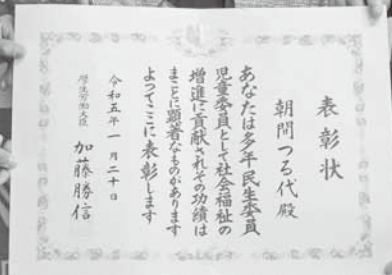 表彰状
朝間つる代殿
あなたは多年民生委員
児童委員として社会福祉の
増進に貢献されその功績は
まことに顕著なものがあります
よってここに表彰します
令和五年一月二十日
厚生労働大臣 加藤勝信